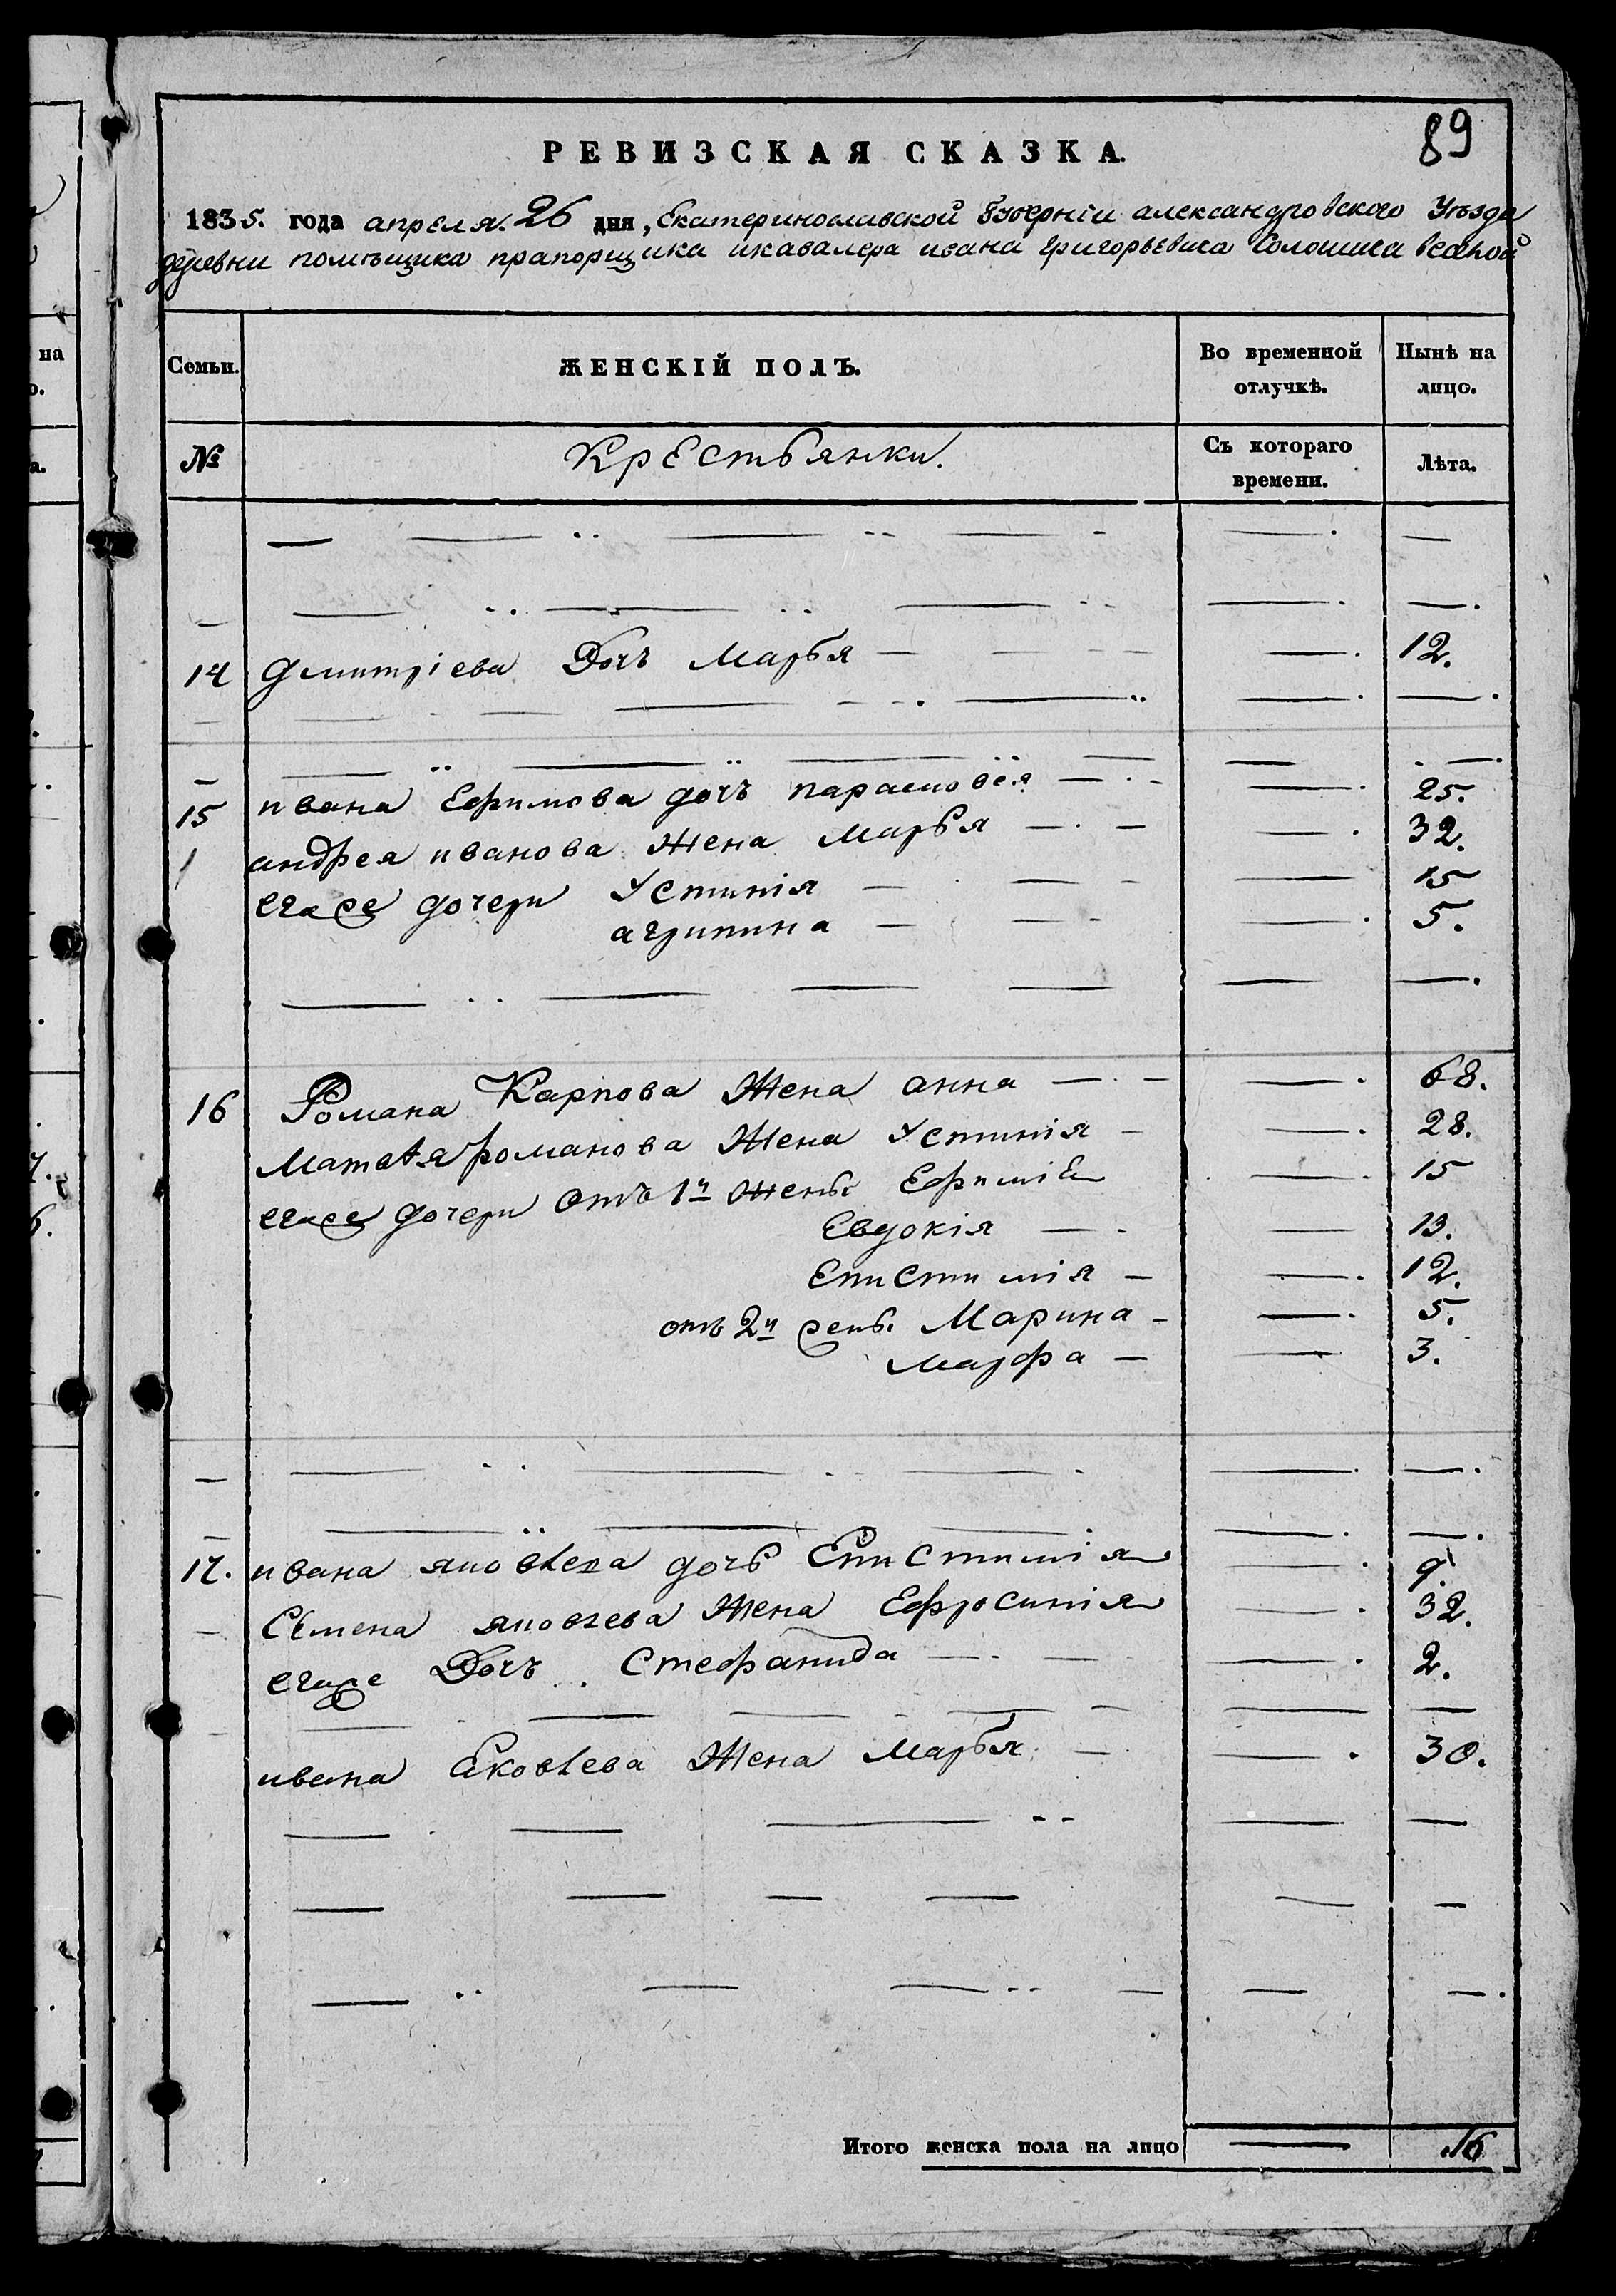 89
РЕВИЗСКАЯ СКАЗКА.
1835. года апреля. 26 дня, Екатеринославской Губерніи александровского Уезда
деревни помѣщика прапорщика икавалера ивана григорьевича
Семьи. ЖЕНСКІЙ ПОЛЪ. Во временной отлучкѣ. Нынѣ на лицо.
№ Крестьянки. Съ котораго времени. Лѣта.
14 Дмитріева Дочь Марья — 12.
15 ивана Ефимова дочь парасковея — 25.
андрея иванова Жена Марья — 32.
егоже дочери Устинія — 15
агрипина — 5.
16 Романа Карпова Жена анна — 68.
Матвея романова Жена Устинія — 28.
егоже дочери отъ 1й жены Ефимія 15
Евдокія — 13.
Епистимія — 12.
отъ 2й жены Марина — 5.
Марфа — 3.
17. ивана яковлева дочь Епистимія 9.
Семена яковлева Жена Ефросинія 32.
егоже Дочь Стефанида — 2.
ивана Яковлева Жена Марья — 30.
Итого женска пола на лицо — 16
на
о.
а.